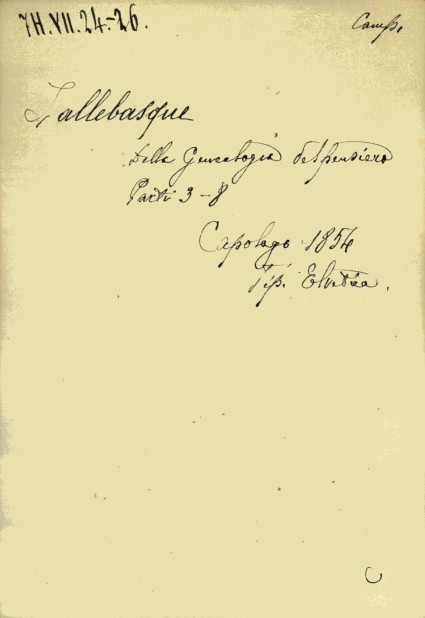 7H.VII.24.-26.
Camp.
Lallebasque
Della Genealogia del pensiero
Parti 3-8
Capolago 1854
Tip. Elvetica.
C